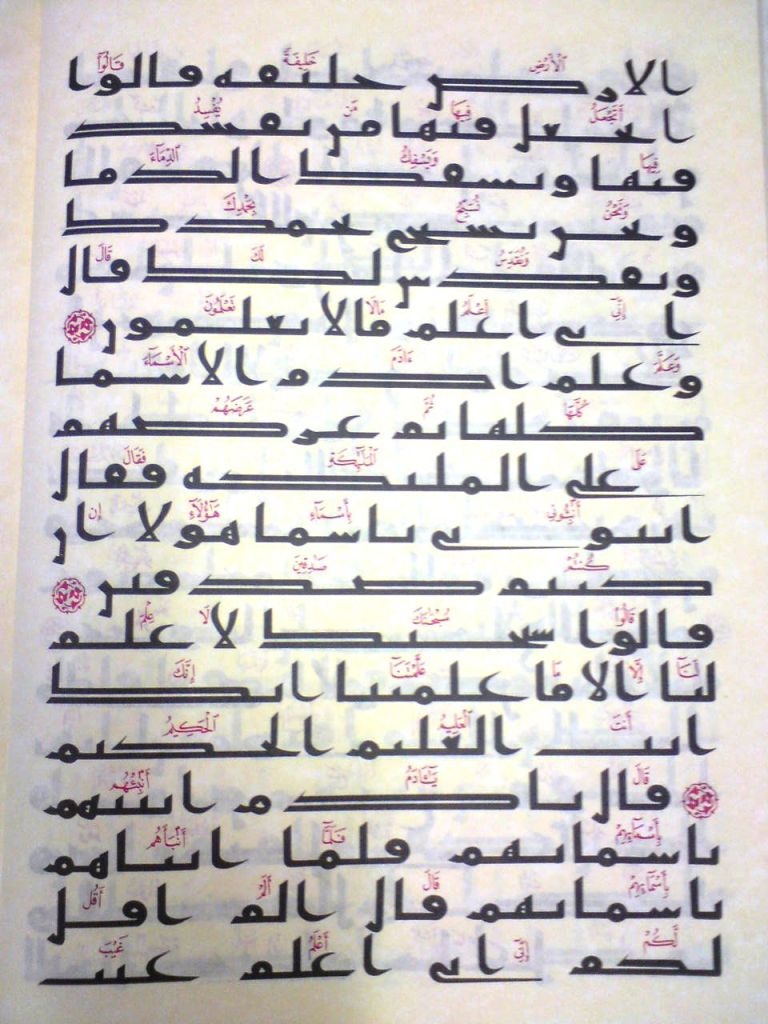 ٱلْأَرْضِ خَلِيفَةً قَالُوٓا۟
الارض خليفه قالوا
أَتَجْعَلُ فِيهَا مَن يُفْسِدُ
اتجعل فيها من يفسد
فِيهَا وَيَسْفِكُ ٱلدِّمَآءَ
فيها ويسفك الدما
وَنَحْنُ نُسَبِّحُ بِحَمْدِكَ
ونحن نسبح بحمدك
وَنُقَدِّسُ لَكَ قَالَ
ونقدس لك قال
إِنِّىٓ أَعْلَمُ مَا لَا تَعْلَمُونَ
انى اعلم ما لا تعلمون
وَعَلَّمَ ءَادَمَ ٱلْأَسْمَآءَ
وعلم ادم الاسما
كُلَّهَا ثُمَّ عَرَضَهُمْ
كلها ثم عرضهم
عَلَى ٱلْمَلَٰٓئِكَةِ فَقَالَ
على الملئكه فقال
أَنۢبِـُٔونِى بِأَسْمَآءِ هَٰٓؤُلَآءِ إِن
انبونى باسما هولا ان
كُنتُمْ صَٰدِقِينَ
كنتم صدقين
قَالُوا۟ سُبْحَٰنَكَ لَا عِلْمَ
قالوا سبحنك لا علم
لَنَآ إِلَّا مَا عَلَّمْتَنَآ إِنَّكَ
لنا الا ما علمتنا انك
أَنتَ ٱلْعَلِيمُ ٱلْحَكِيمُ
انت العليم الحكيم
قَالَ يَٰٓـَٔادَمُ أَنۢبِئْهُم
قال يادم انبئهم
بِأَسْمَآئِهِمْ فَلَمَّآ أَنۢبَأَهُم
باسمائهم فلما انباهم
بِأَسْمَآئِهِمْ قَالَ أَلَمْ أَقُل
باسمائهم قال الم اقل
لَّكُمْ إِنِّىٓ أَعْلَمُ غَيْبَ
لكم انى اعلم غيب